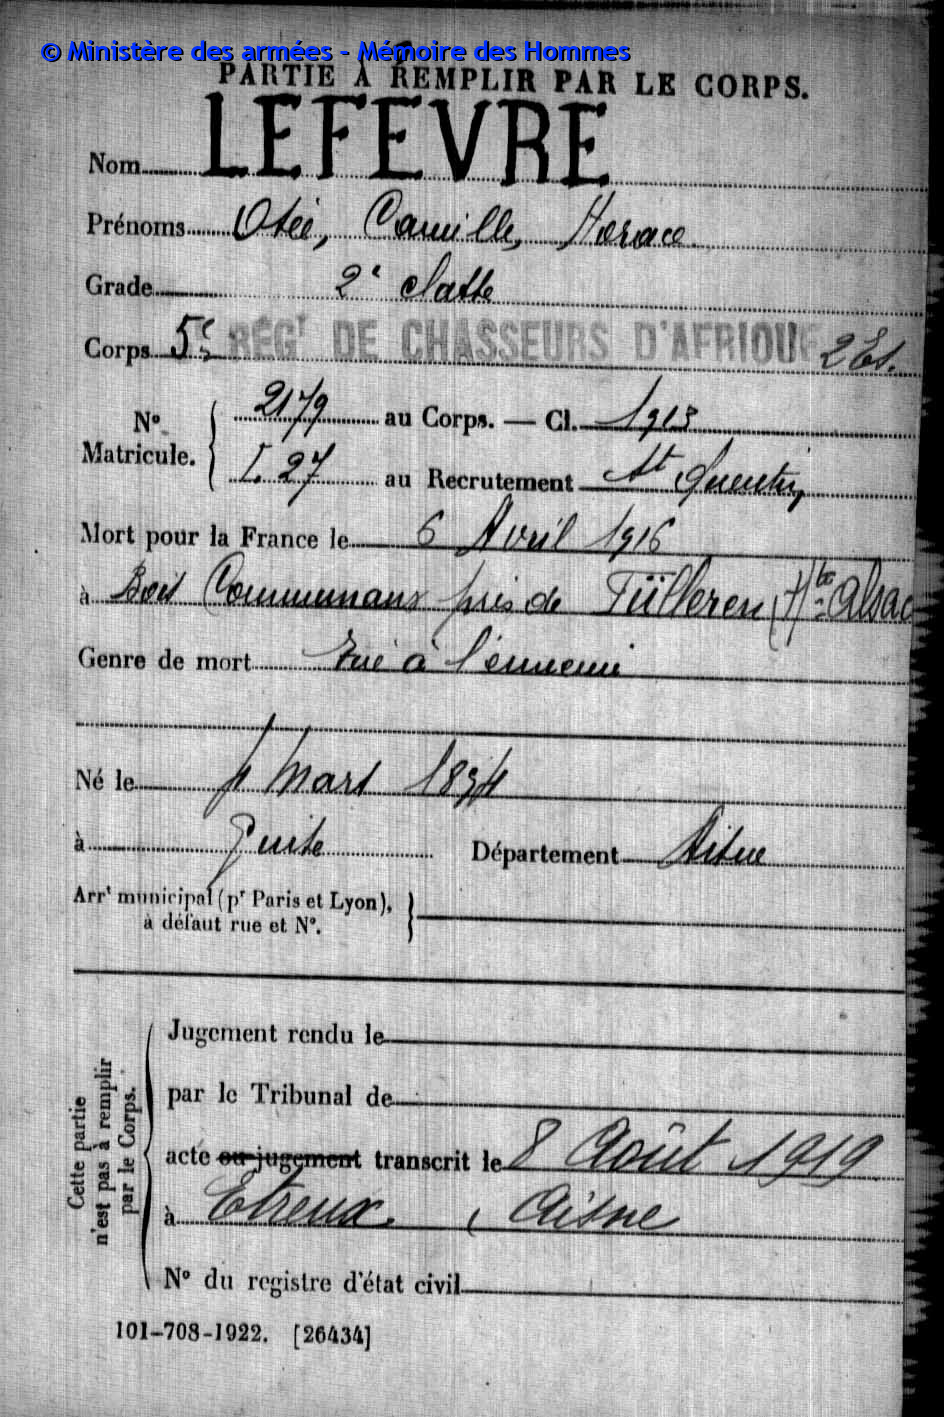 © Ministère des armées - Mémoire des Hommes
PARTIE À REMPLIR PAR LE CORPS.
Nom LEFEVRE
Prénoms Osée, Camille, Horace
Grade 2e classe
Corps 5e RÉGt DE CHASSEURS D'AFRIQUE 2 Es.
No Matricule. 2179 au Corps. — Cl. 1913
L. 27 au Recrutement St Quentin
Mort pour la France le 6 Avril 1916
à Bois Communaux près de Fülleren (Hte Alsac
Genre de mort tué à l'ennemi
Né le Mars 1894
à Guise Département Aisne
Arrt municipal (pr Paris et Lyon),
à défaut rue et No.
Cette partie
n'est pas à remplir
par le Corps.
Jugement rendu le
par le Tribunal de
acte ou jugement transcrit le 8 Août 1919
à Etreux. (Aisne
No du registre d'état civil
101-708-1922. [26434]